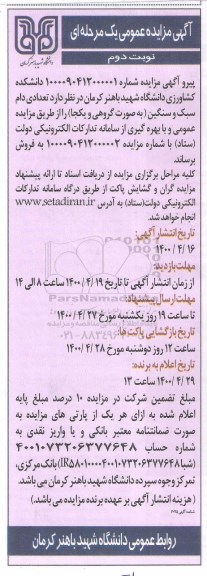 آگهی مزایده عمومی یک مرحله ای
نوبت دوم
پیرو آگهی مزایده شماره ۱۰۰۰۰۹۰۴۱۲۰۰۰۰۰۱ دانشکده
کشاورزی دانشگاه شهید باهنر کرمان در نظر دارد تعدادی دام
سبک و سنگین ( به صورت گروهی و یکجا) را از طریق مزایده
عمومی و با بهره گیری از سامانه تدارکات الکترونیکی دولت
(ستاد) با شماره مزایده ۱۰۰۰۰۹۰۴۱۲۰۰۰۰۰۲ به فروش
برساند.
کلیه مراحل برگزاری مزایده از دریافت اسناد تا ارائه پیشنهاد
مزایده گران و گشایش پاکت از طریق درگاه سامانه تدارکات
الکترونیکی دولت(ستاد) به آدرس www.setadiran.ir
انجام خواهد شد.
تاریخ انتشار آگهی:
۱۴۰۰ /۴ /۱۶
مهلت بازدید:
از زمان انتشار آگهی تا تاریخ ۱۹ /۴ /۱۴۰۰ ساعت ۸ الی ۱۴
مهلت ارسال پیشنهاد:
تا ساعت ۱۹ روز یکشنبه مورخ ۲۷ /۴ /۱۴۰۰
تاریخ بازگشایی پاکت ها:
ساعت ۱۲ روز دوشنبه مورخ ۲۸ /۴ /۱۴۰۰
تاریخ اعلام به برنده:
۲۹ /۴ /۱۴۰۰ ساعت ۱۳
مبلغ تضمین شرکت در مزایده ۱۰ درصد مبلغ پایه
اعلام شده به ازای هر یک از پارتی های مزایده به
صورت ضمانتنامه معتبر بانکی و یا واریز نقدی به
شماره حساب ۴۰۰۱۰۷۳۲۰۶۳۷۷۶۴۸
(شبا IR۵۸۰۱۰۰۰۰۴۰۰۱۰۷۳۲۰۶۳۷۷۶۴۸) بانک مرکزی،
تمرکز وجوه سپرده دانشگاه شهید باهنر کرمان می باشد.
( هزینه انتشار آگهی بر عهده برنده مزایده می باشد.)
روابط عمومی دانشگاه شهید باهنر کرمان